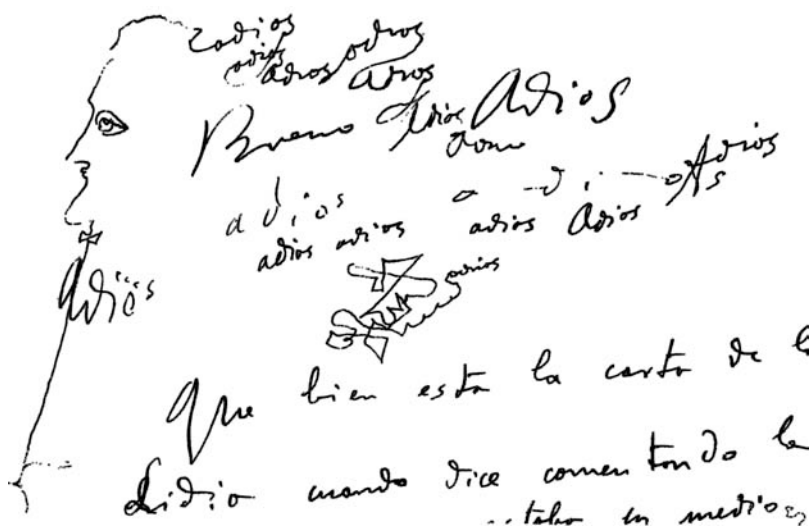 adios
adios adios
adios adios
Bueno Adios Adios
adios adios
adios adios adios Adios
Adios adios
Que bien esta la carta de l
Lidia cuando dice comentando la
en medio